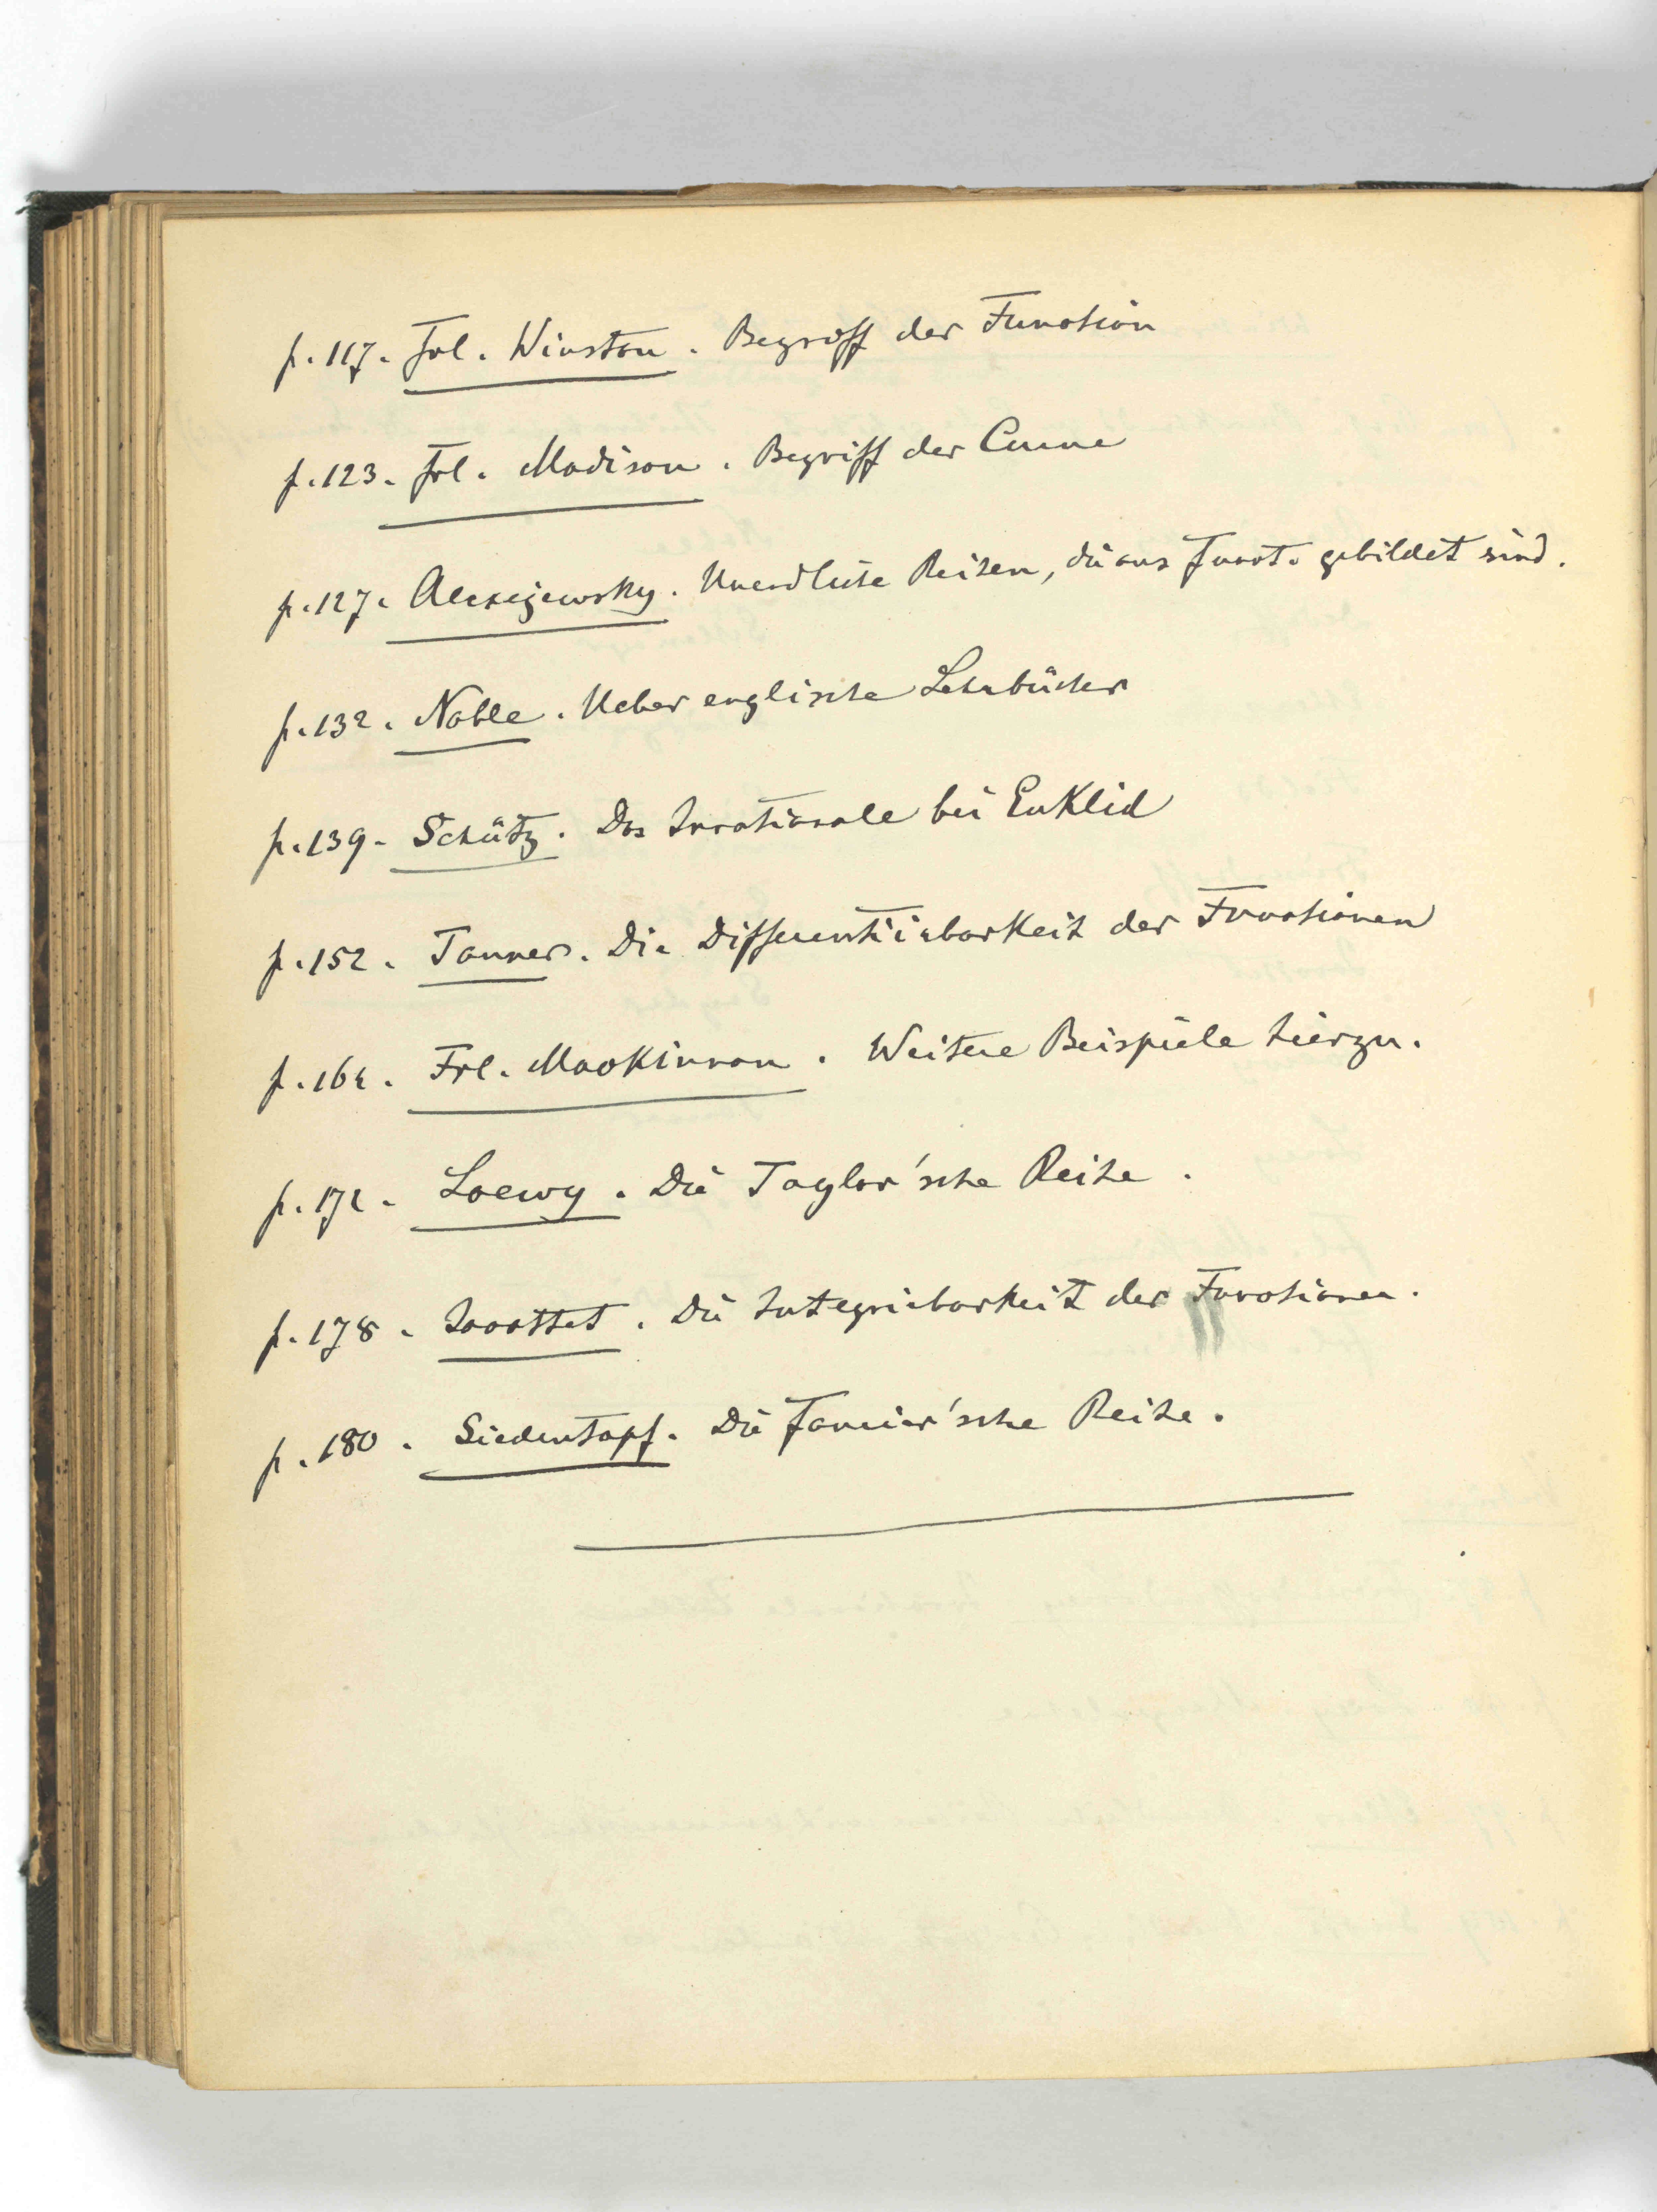 p. 117. Frl. Winston. Begriff der Function
p. 123. Frl. Madison. Begriff der Curve
p. 127. Alexejewsky. Unendliche Reihen, die aus Funct. gebildet sind.
p. 132. Noble. Ueber englische Lehrbücher
p. 139. Schütz. Das Irrationale bei Euklid
p. 152. Tanner. Die Differentiirbarkeit der Functionen
p. 162. Frl. MacKinnon. Weitere Beispiele hierzu.
p. 172. Loewy. Die Taylor'sche Reihe.
p. 178. Die Integrirbarkeit der Functionen.
p. 180. Siedentopf. Die Fourier'sche Reihe.